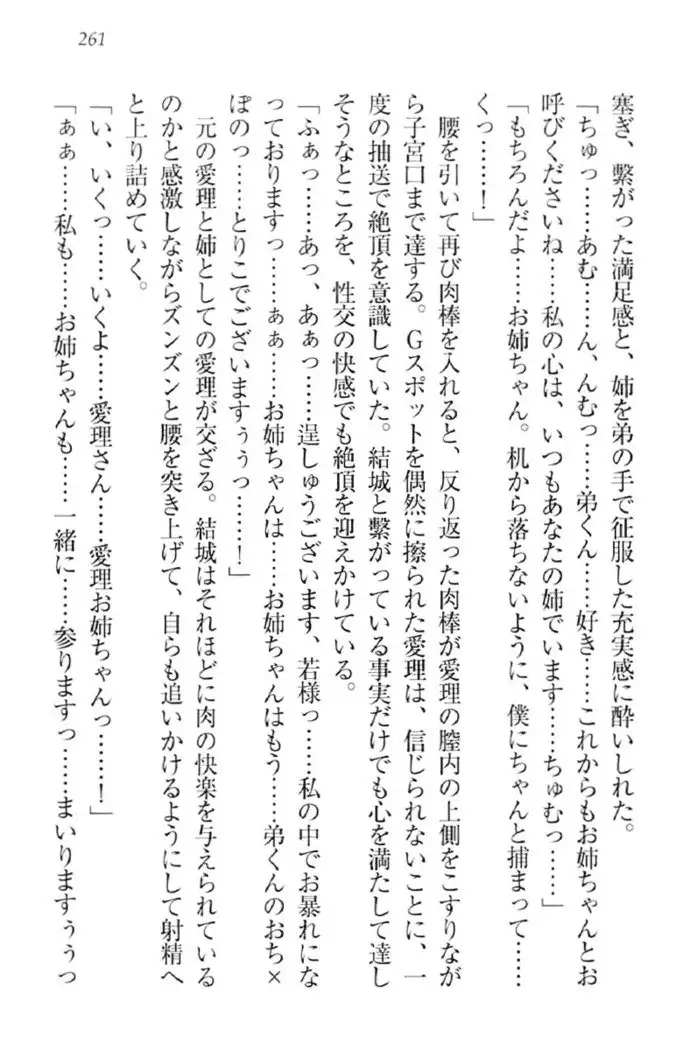 261
塞ぎ、繋がった満足感と、姉を弟の手で征服した充実感に酔いしれた。
「ちゅっ……あむ……ん、んむっ……弟くん……好き……これからもお姉ちゃんとお
呼びくださいね……私の心は、いつもあなたの姉でいます……ちゅむっ……」
「もちろんだよ……お姉ちゃん。机から落ちないように、僕にちゃんと捕まって……
くっ……！」
腰を引いて再び肉棒を入れると、反り返った肉棒が愛理の膣内の上側をこすりなが
ら子宮口まで達する。Ｇスポットを偶然に擦られた愛理は、信じられないことに、一
度の抽送で絶頂を意識していた。結城と繋がっている事実だけでも心を満たして達し
そうなところを、性交の快感でも絶頂を迎えかけている。
「ふぁっ……あっ、あぁっ……逞しゅうございます、若様っ……私の中でお暴れにな
っておりますっ……ぁぁ……お姉ちゃんは……お姉ちゃんはもう……弟くんのおち×
ぽのっ……とりこでございますぅぅっ……！」
元の愛理と姉としての愛理が交ざる。結城はそれほどに肉の快楽を与えられている
のかと感激しながらズンズンと腰を突き上げて、自らも追いかけるようにして射精へ
と上り詰めていく。
「い、いくっ……いくよ……愛理さん……愛理お姉ちゃんっ……！」
「ぁぁ……私も……お姉ちゃんも……一緒に……参りますっ……まいりますぅぅっ